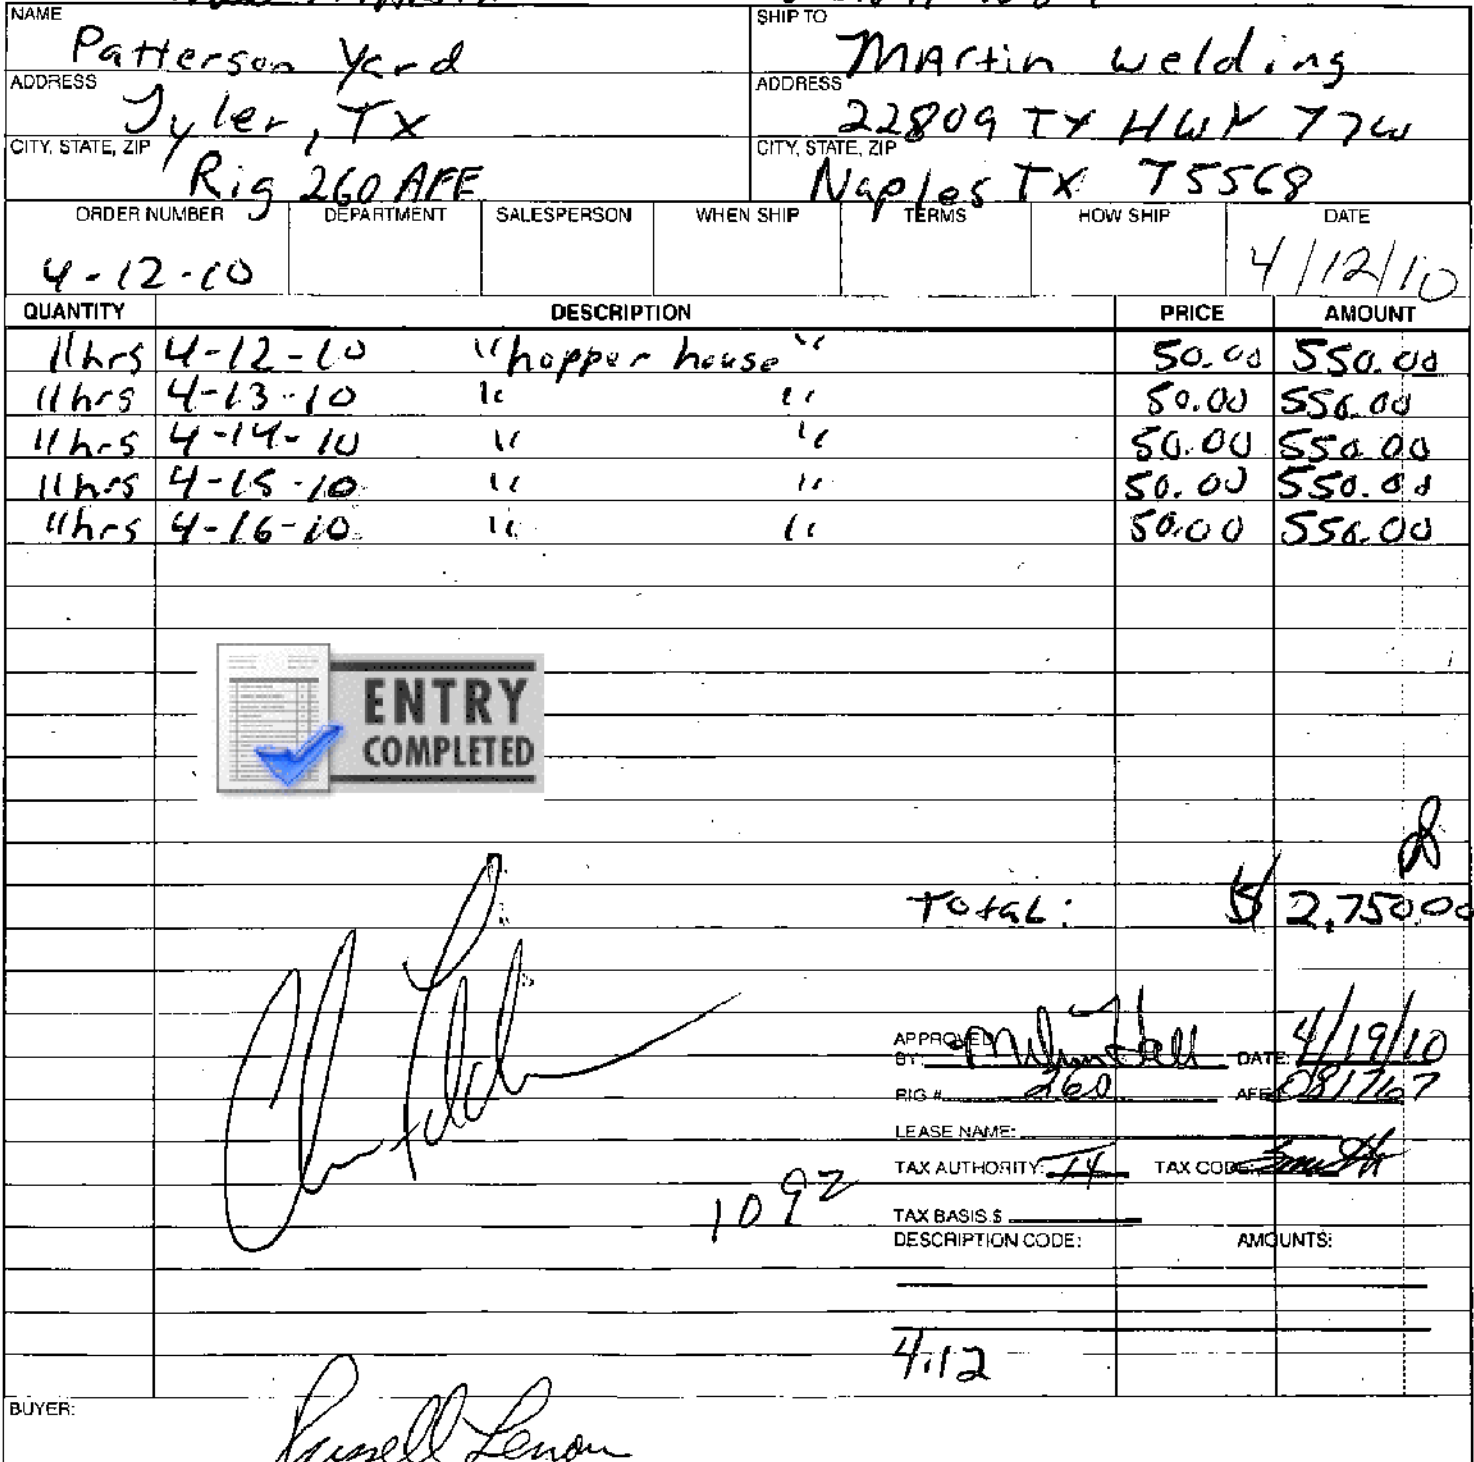 NAME SHIP TO
Patterson Yard MArtin welding
ADDRESS ADDRESS
Tyler, TX 22809 TX HWY 77W
CITY, STATE, ZIP CITY, STATE, ZIP
Rig 260 AFE Naples TX 75568
ORDER NUMBER DEPARTMENT SALESPERSON WHEN SHIP TERMS HOW SHIP DATE
4-12-10 4/12/10
QUANTITY DESCRIPTION PRICE AMOUNT
11hrs 4-12-10 "hopper house" 50.00 550.00
11hrs 4-13-10 " " 50.00 550.00
11hrs 4-14-10 " " 50.00 550.00
11hrs 4-15-10 " " 50.00 550.00
11hrs 4-16-10 " " 50.00 550.00
ENTRY
COMPLETED
Total: $ 2,750.00
APPROVED
BY: DATE: 4/19/10
RIG #. 260 AFE 081767
LEASE NAME:
TAX AUTHORITY: TX TAX CODE:
1092
TAX BASIS $
DESCRIPTION CODE: AMOUNTS:
4.12
BUYER:
Russell Lenon